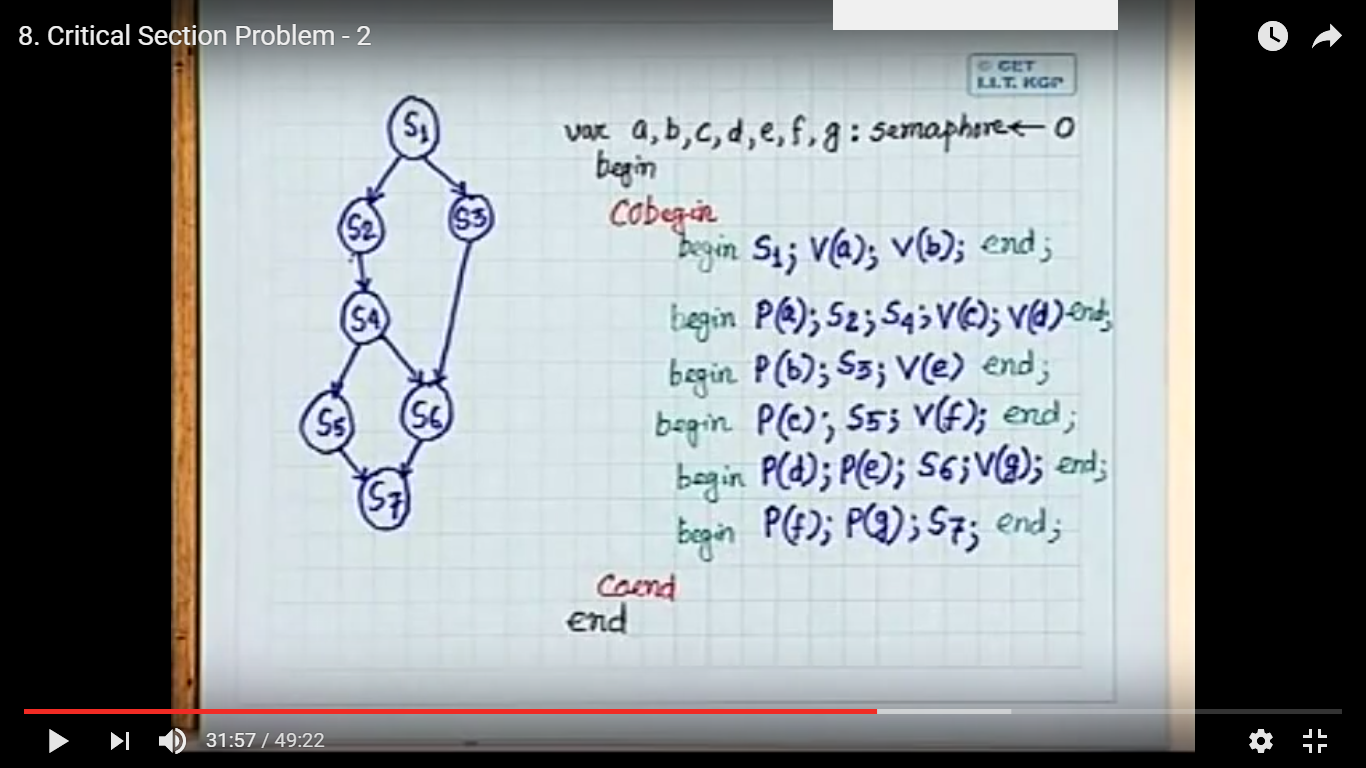 8. Critical Section Problem - 2
© CET
I.I.T. KGP
S1
S2
S3
S4
S5
S6
S7
var a, b, c, d, e, f, g : semaphore ← 0
begin
Cobegin
begin S1; V(a); V(b); end;
begin P(a); S2; S4; V(c); V(d) end;
begin P(b); S3; V(e) end;
begin P(c); S5; V(f); end;
begin P(d); P(e); S6; V(g); end;
begin P(f); P(g); S7; end;
Coend
end
31:57 / 49:22